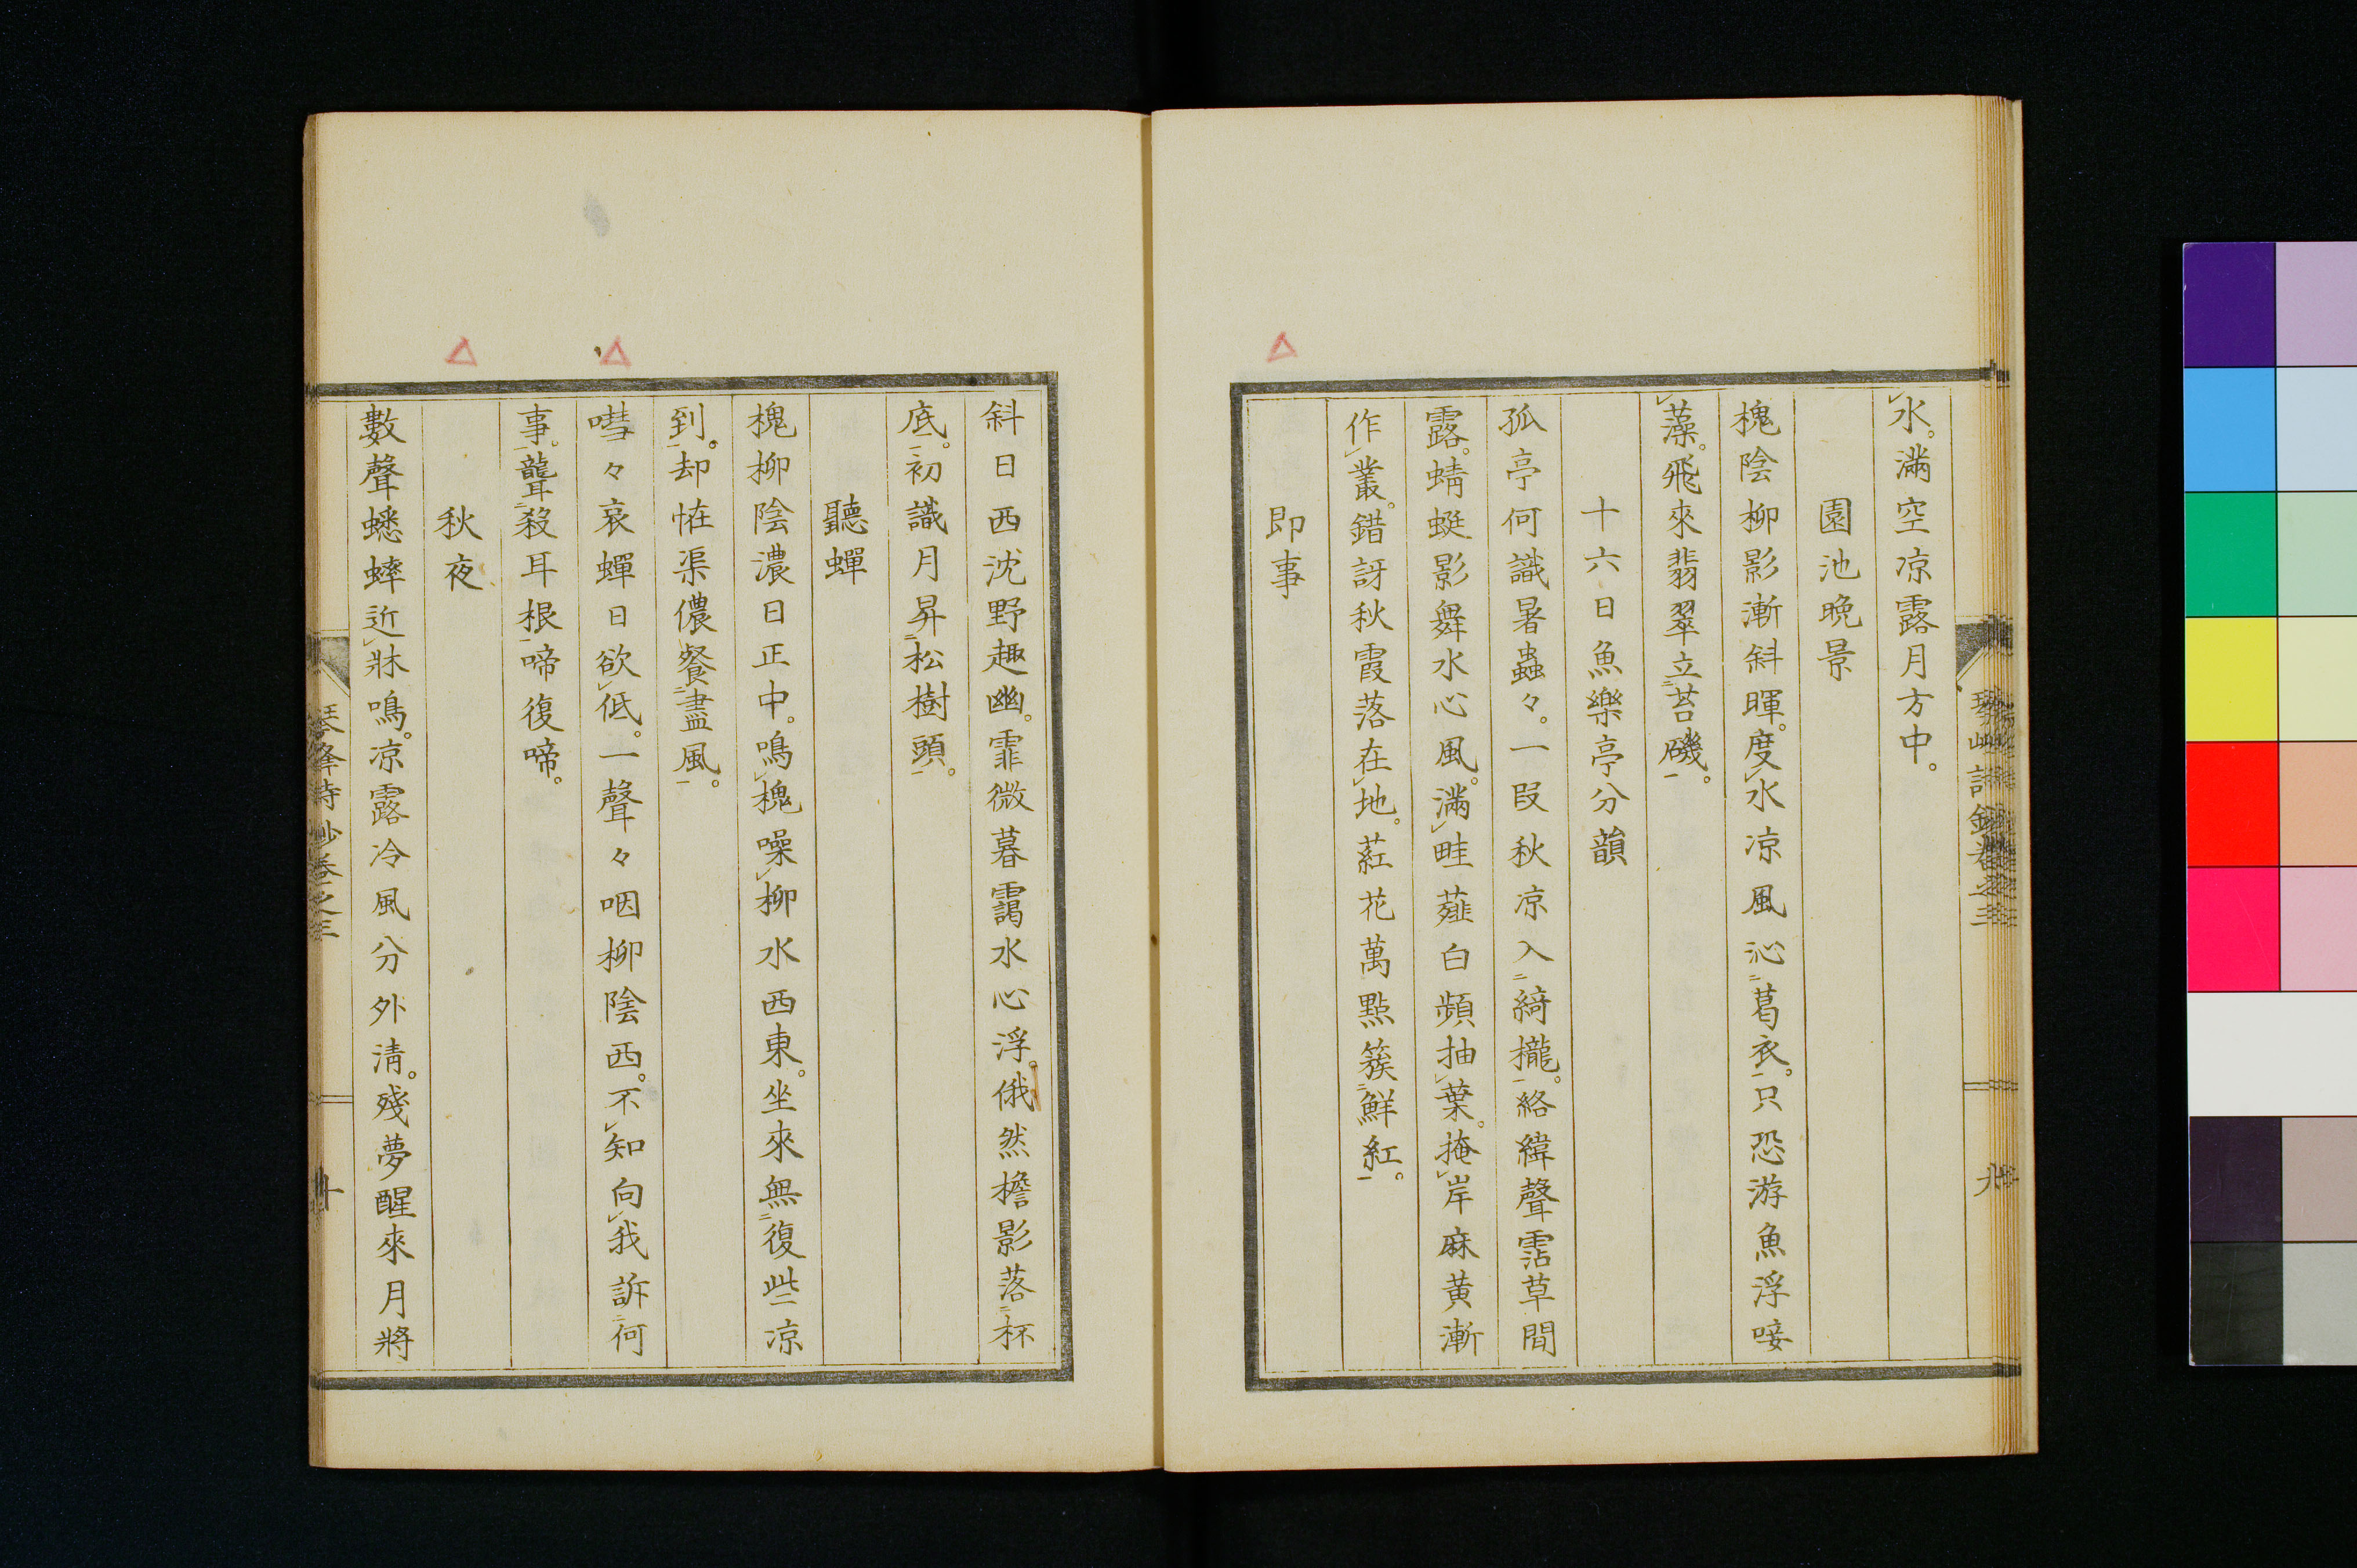 水。滿空凉露月方中。
園池晩景
槐陰柳影漸斜暉。度水凉風沁葛衣。只恐游魚浮唼
藻。飛來翡翠立苔磯。
十六日魚樂亭分韻
孤亭何識暑蟲々。一段秋凉入綺櫳。絡緯聲霑草間
露。蜻蜓影舞水心風。滿畦薤白頻抽葉。掩岸麻黃漸
作叢。錯訝秋霞落在地。葒花萬點簇鮮紅。
即事
九
斜日西沈野趣幽。霏微暮靄水心浮。俄然檐影落杯
底。初識月昇松樹頭。
聽蟬
槐柳陰濃日正中。鳴槐噪柳水西東。坐來無復些凉
到。却恠渠儂餐盡風。
嘒々哀蟬日欲低。一聲々咽柳陰西。不知向我訴何
事。聾殺耳根啼復啼。
秋夜
數聲蟋蟀近牀鳴。凉露冷風分外淸。殘夢醒來月將
琴峯詩鈔卷之三
十